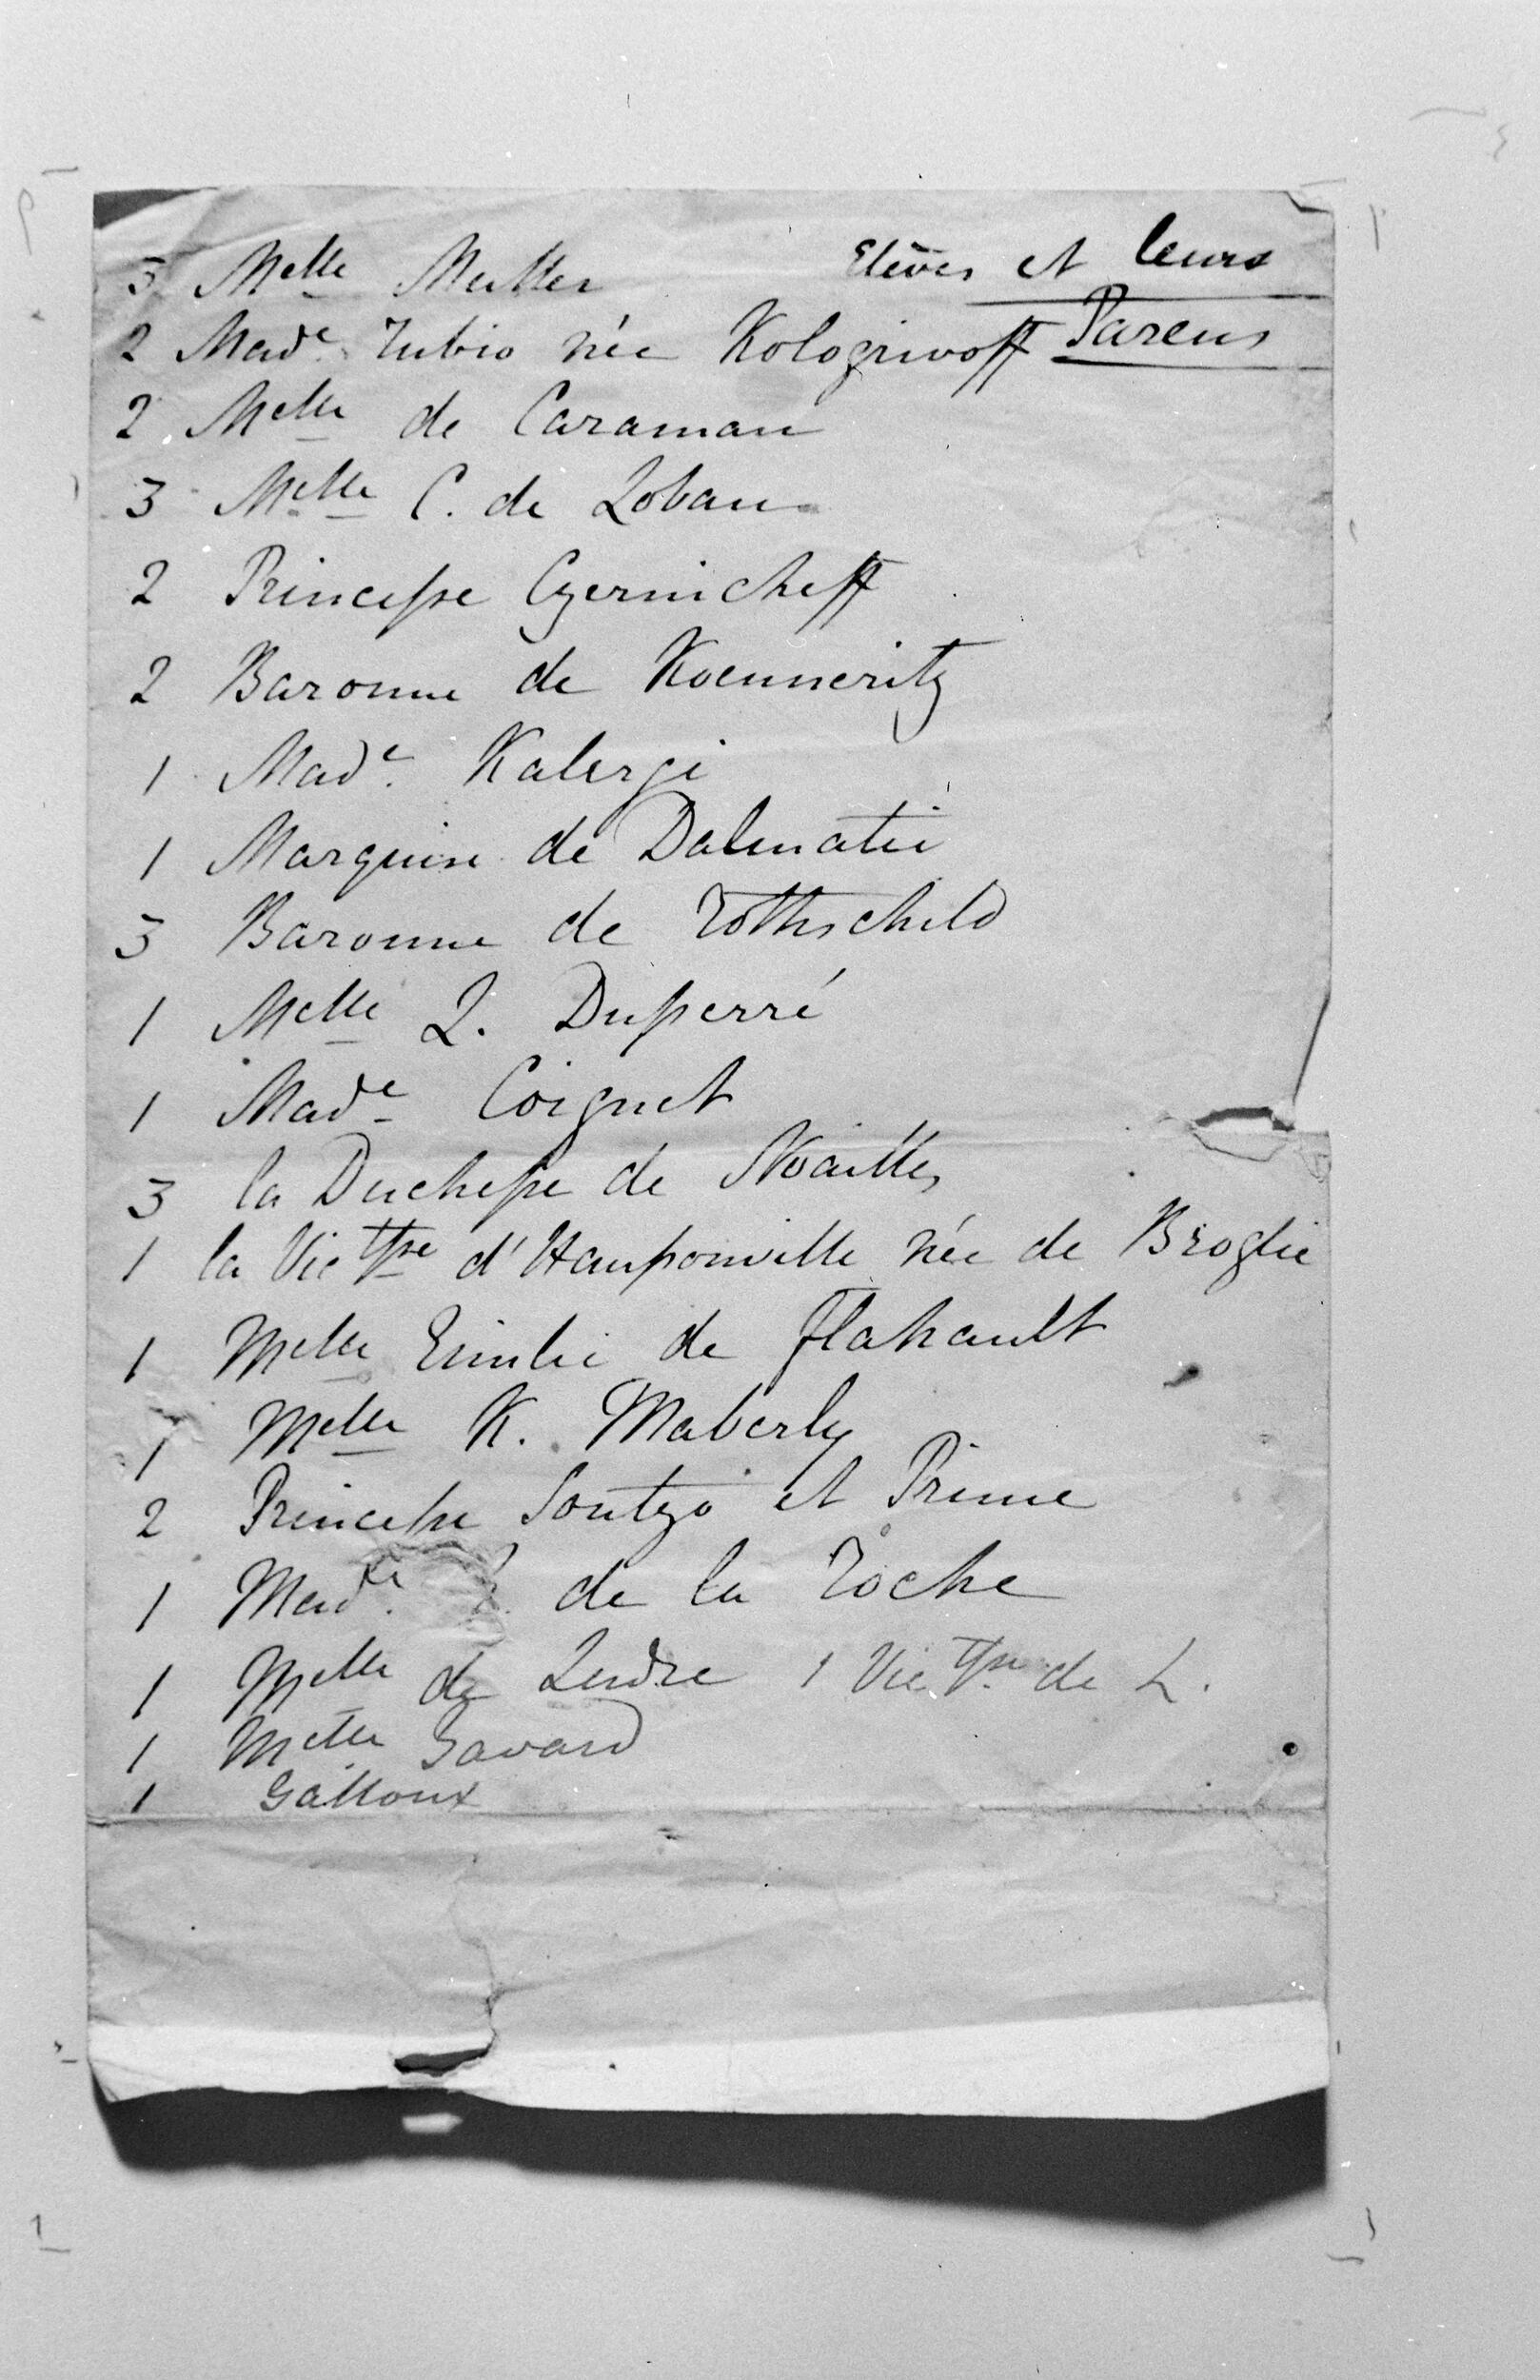 Elèves et leurs
Parens
3 Melle Muller
2 Made Rubio née Kologrivoff
2 Melle de Caraman
3 Melle C. de Lobau
2 Princesse Czernicheff
2 Baronne de Koenneritz
1 Made. Kalergi
1 Marquise de Dalmatie
3 Baronne de Rothschild
1 Melle L. Duperré
1 Made Coignet
3 la Duchesse de Noailles
1 la Victsse d'Haussonville née de Broglie
1 Melle Emilie de Flahault
1 Melle K. Maberly
2 Princesse Soutzo et Prince
1 Made. de la Roche
1 Melle de Ludre 1 Victsse de L.
1 Melle Gavard
1 Galloux